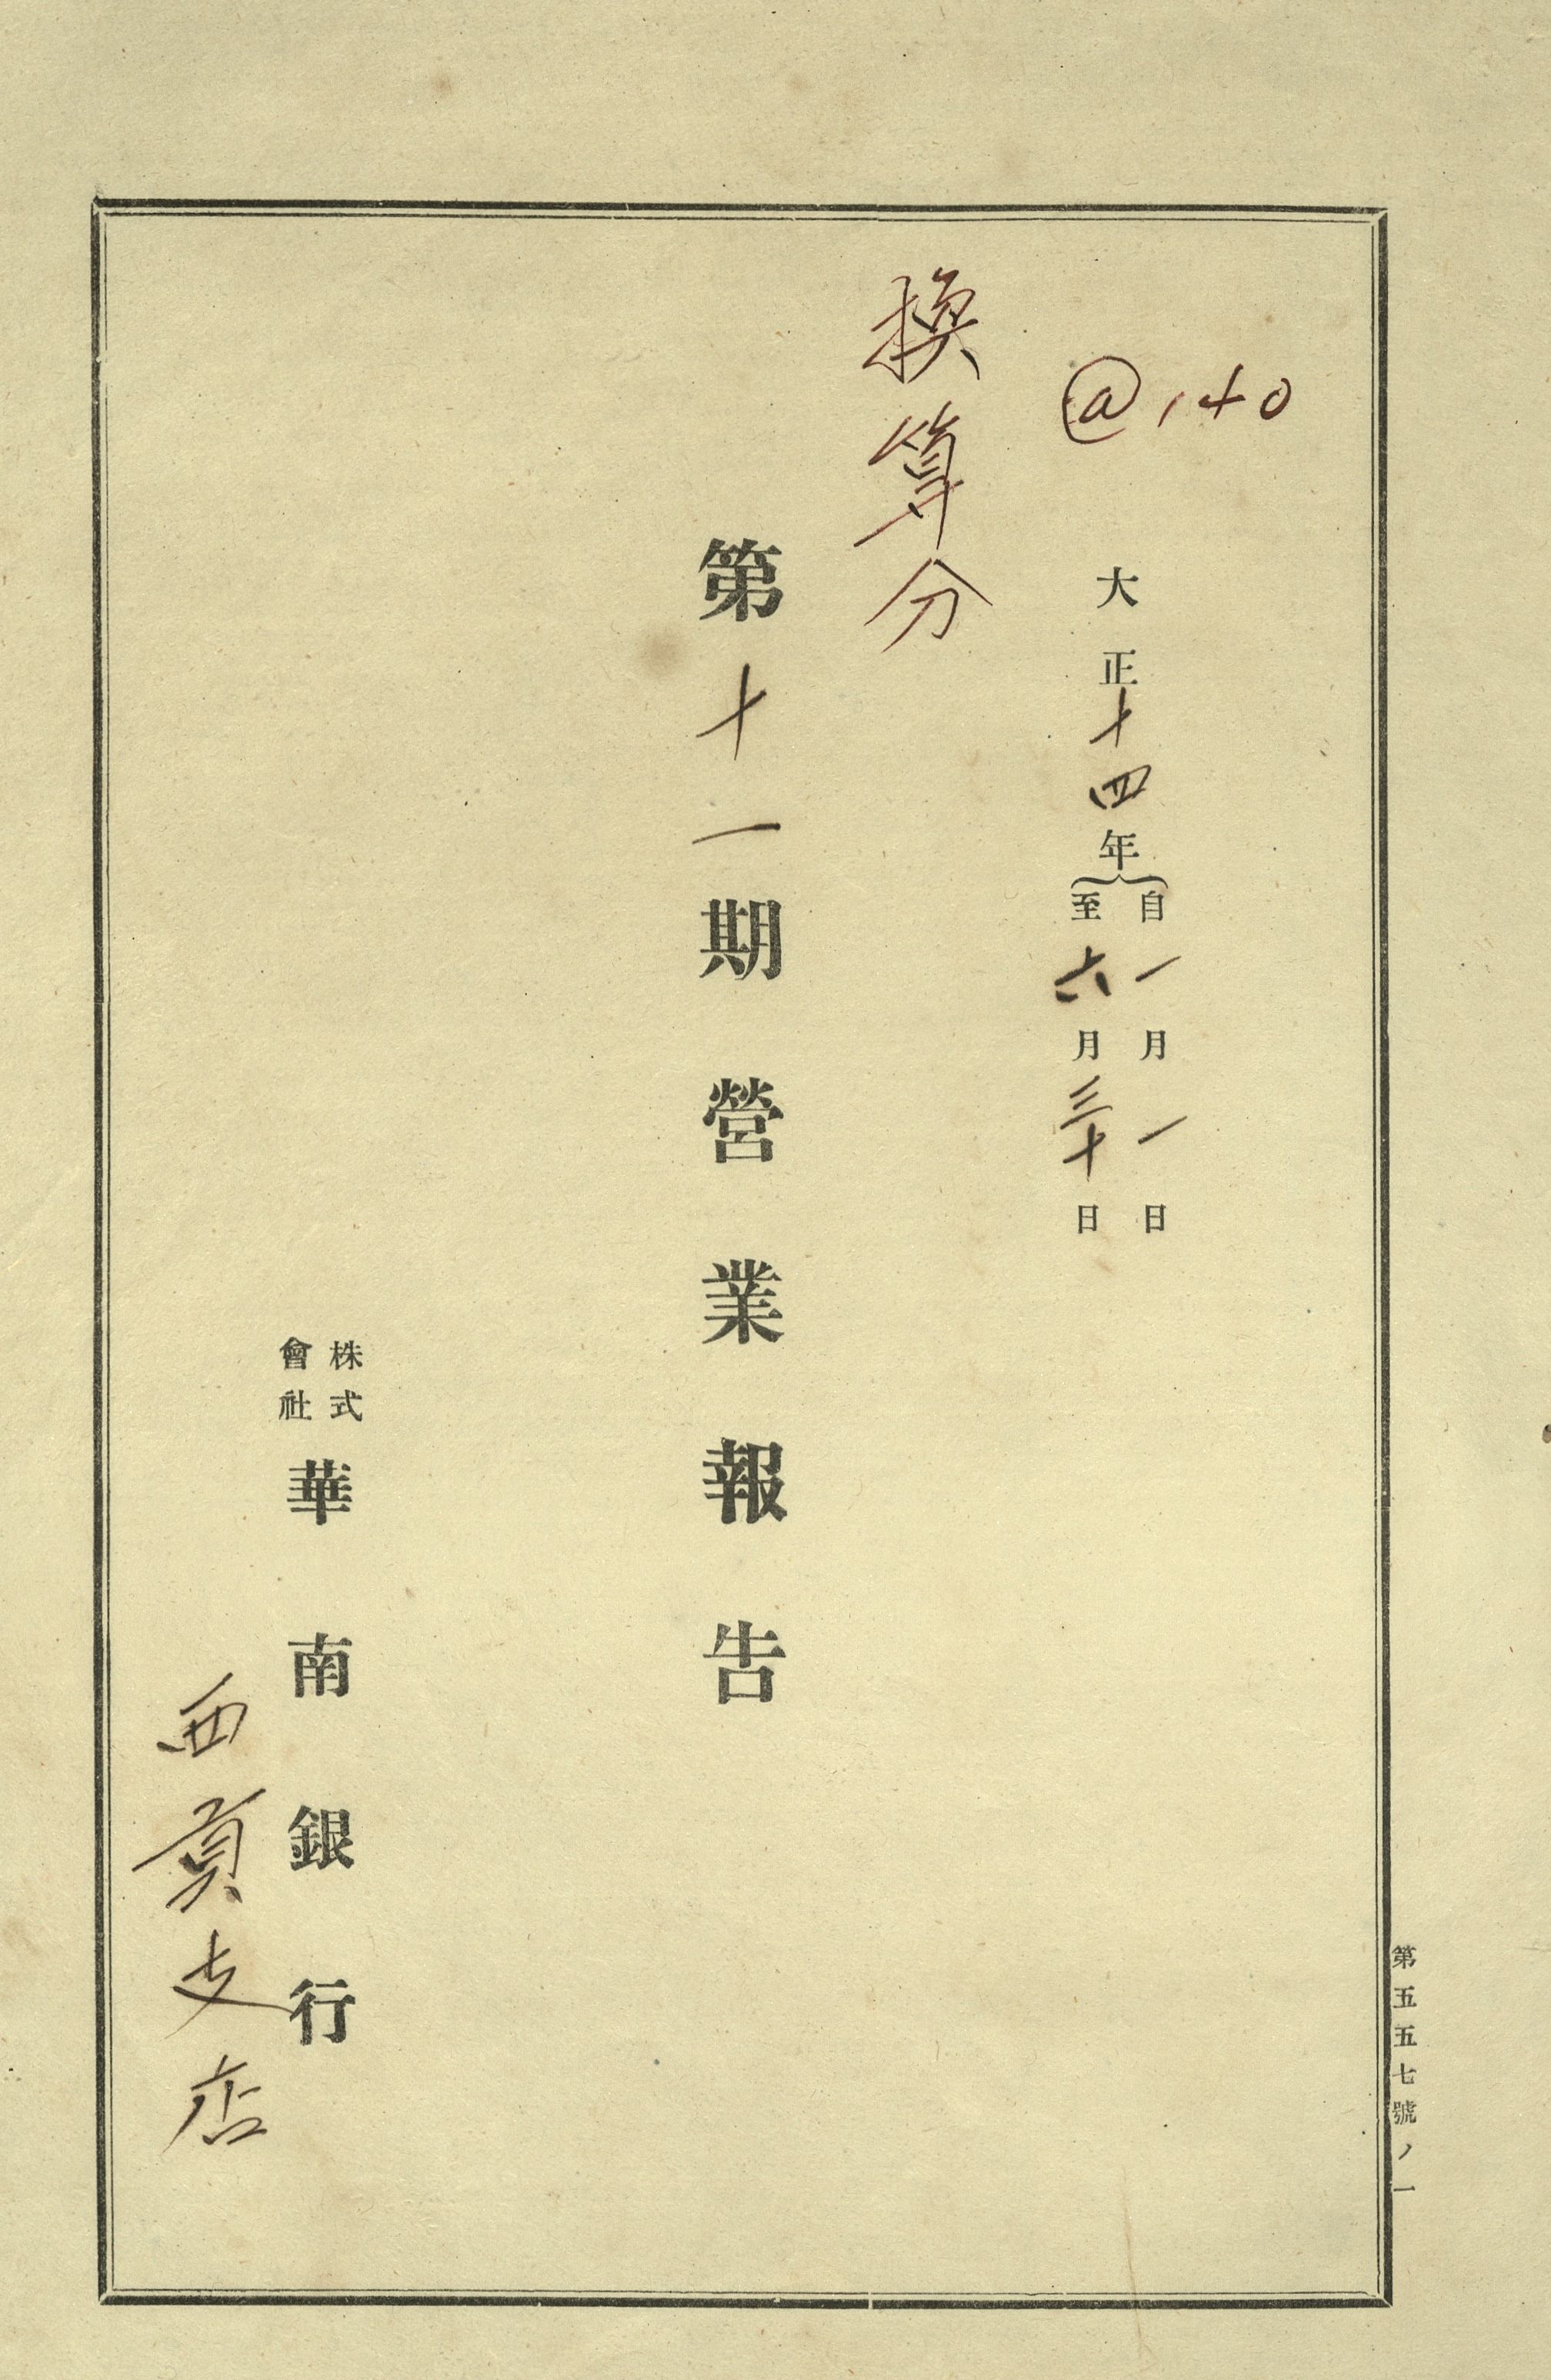 @140
大正十四年
自一月一日
至六月三十日
換算分
第十一期營業報告
株式會社
華南銀行
西貢支店
第五五七號ノ一